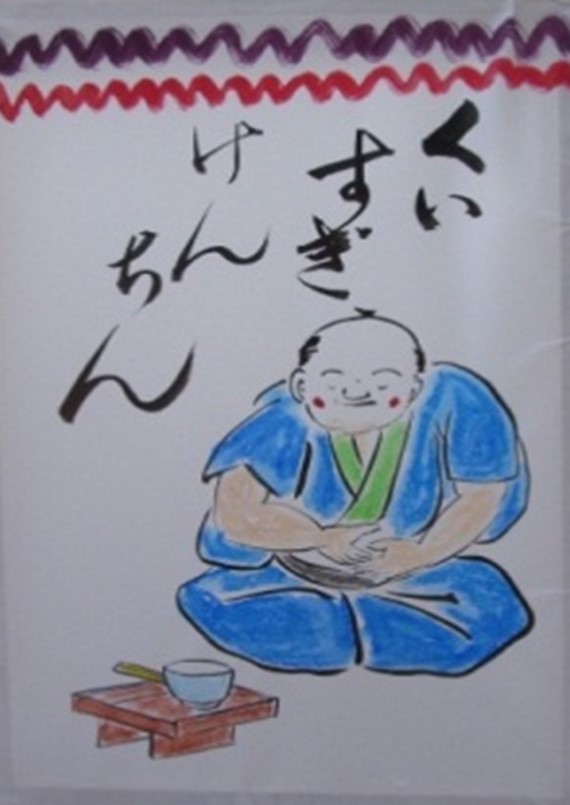 くい
すぎ
けん
ちん